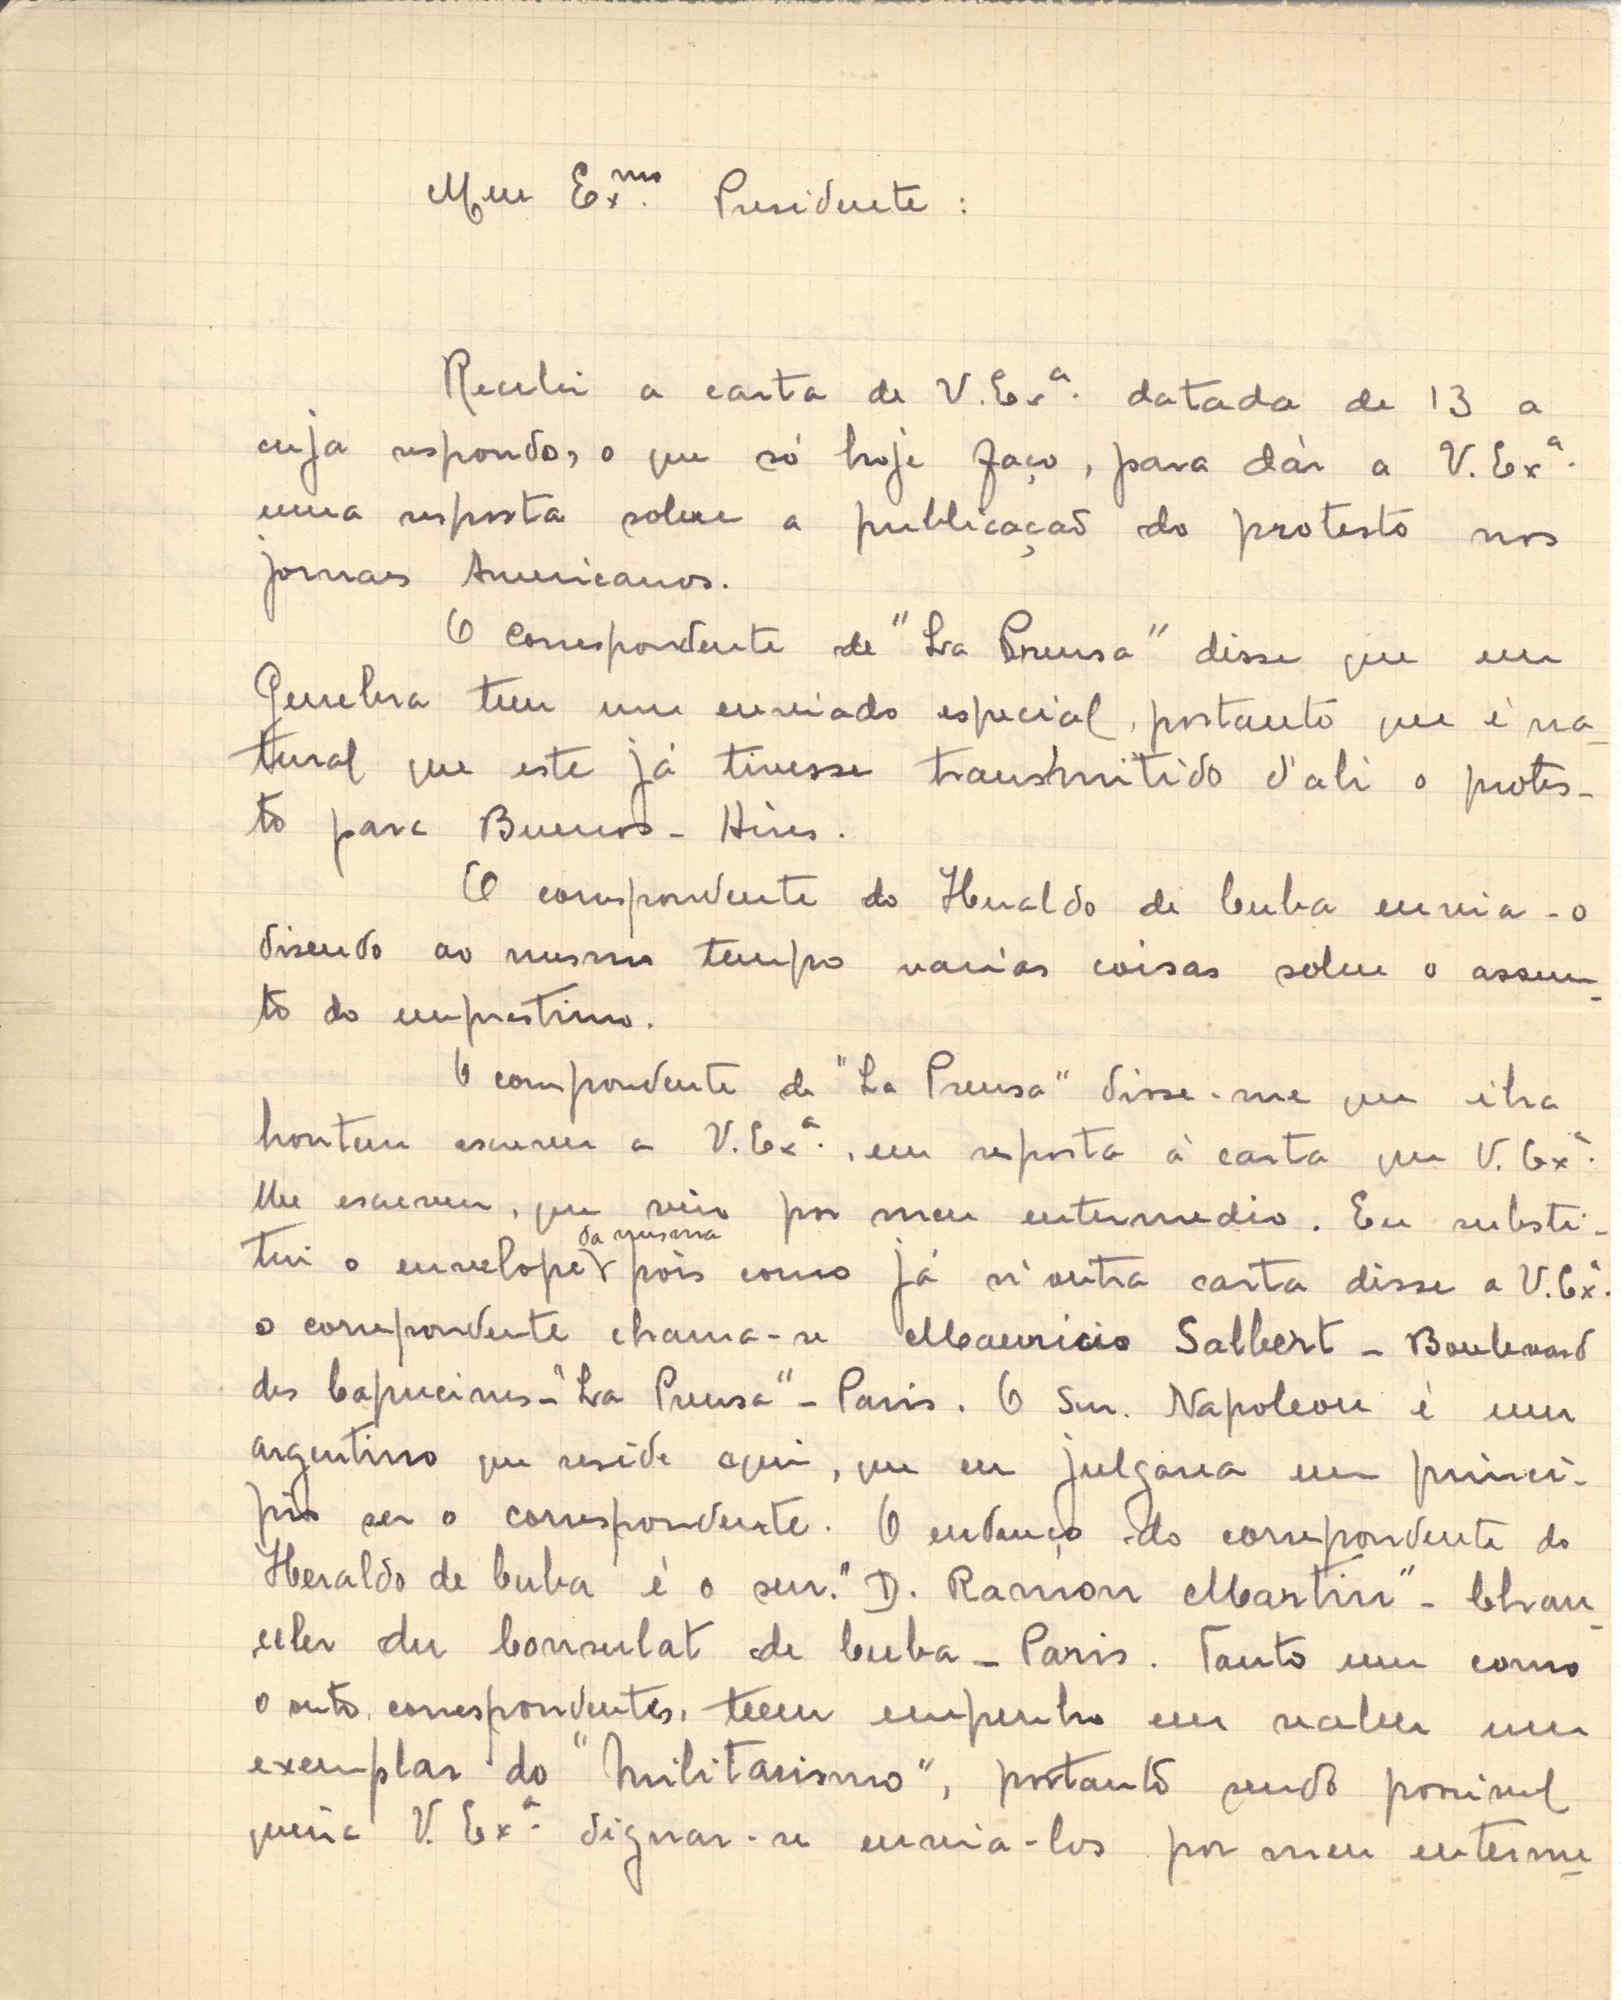 Meu Ex.mo Presidente:
Recebi a carta de V. Exª. datada de 13 a
cuja respondo, o que só hoje faço, para dár a V. Exª.
uma resposta sobre a publicação do protesto nos
jornaes Americanos.
O correspondente de "La Prensa" disse que em
Genebra tem um enviado especial, portanto que é na-
tural que este já tivesse transmitido d'ali o protes-
to para Buenos-Aires.
O correspondente do Heraldo de Cuba envia-o
disendo ao mesmo tempo varias coisas sobre o assum-
to do emprestimo.
O correspondente de "La Prensa" disse-me que
hontem escreveu a V. Exª., em resposta á carta que V. Exª.
lhe escreveu, que veio por meu entermedio. Eu substi-
tui o envelope da mesma pois como já n'outra carta disse a V. Exª.
o correspondente chama-se Mauricio Salbert - Boulevard
des Capucines - "La Prensa" - Paris. O Snr. Napoleon é um
argentino que reside aqui, que eu julgava em princi-
pio ser o correspondente. O endereço do correspondente do
Heraldo de Cuba é o snr. "D. Ramon Martin" - Chan-
celer du Consulat de Cuba - Paris. Tanto um como
o outo, correspondentes, teem empenho em receber um
exemplar do "Militarismo", portanto sendo possivel
queira V. Exª. dignar-se envia-los por meu enterme-